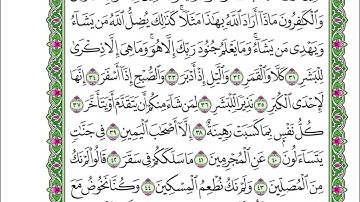 وَالْكَٰفِرُونَ مَاذَا أَرَادَ اللَّهُ بِهَٰذَا مَثَلًا كَذَٰلِكَ يُضِلُّ اللَّهُ مَن يَشَاءُ
وَيَهْدِى مَن يَشَاءُ وَمَا يَعْلَمُ جُنُودَ رَبِّكَ إِلَّا هُوَ وَمَا هِىَ إِلَّا ذِكْرَىٰ
لِلْبَشَرِ ٣١ كَلَّا وَالْقَمَرِ ٣٢ وَالَّيْلِ إِذْ أَدْبَرَ ٣٣ وَالصُّبْحِ إِذَا أَسْفَرَ ٣٤ إِنَّهَا
لَإِحْدَى الْكُبَرِ ٣٥ نَذِيرًا لِّلْبَشَرِ ٣٦ لِمَن شَاءَ مِنكُمْ أَن يَتَقَدَّمَ أَوْ يَتَأَخَّرَ ٣٧
كُلُّ نَفْسٍ بِمَا كَسَبَتْ رَهِينَةٌ ٣٨ إِلَّا أَصْحَٰبَ الْيَمِينِ ٣٩ فِى جَنَّٰتٍ
يَتَسَاءَلُونَ ٤٠ عَنِ الْمُجْرِمِينَ ٤١ مَا سَلَكَكُمْ فِى سَقَرَ ٤٢ قَالُوا لَمْ نَكُ
مِنَ الْمُصَلِّينَ ٤٣ وَلَمْ نَكُ نُطْعِمُ الْمِسْكِينَ ٤٤ وَكُنَّا نَخُوضُ مَعَ